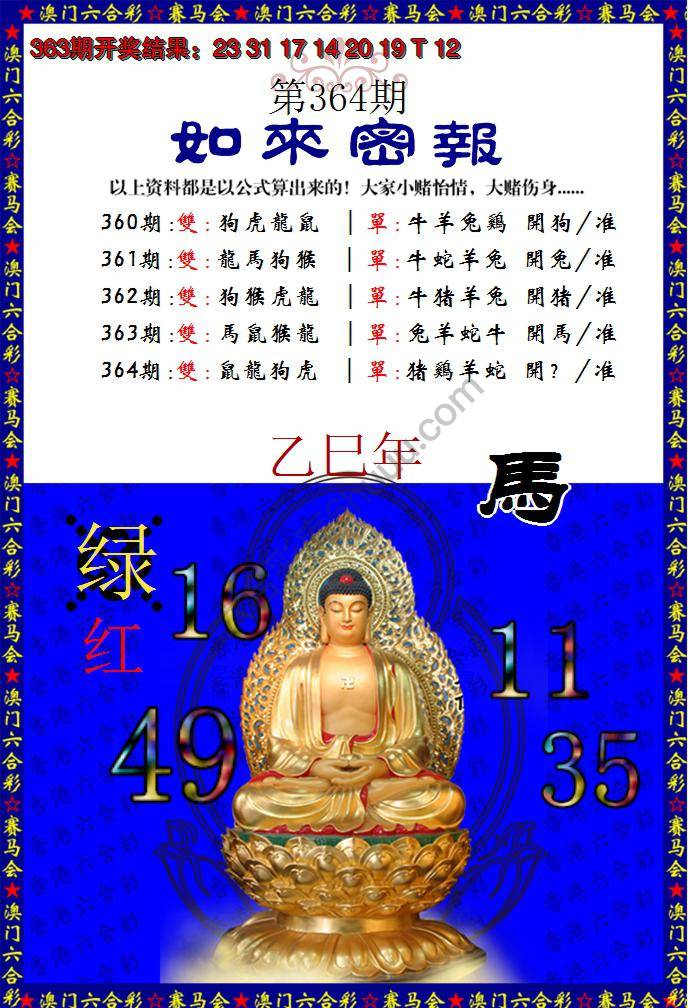 ★澳门六合彩☆赛马会★澳门六合彩☆赛马会★澳门六合彩☆赛马会★
363期开奖结果：23 31 17 14 20 19 T 12
第364期
如來密報
以上资料都是以公式算出来的！大家小赌怡情，大赌伤身......
360期:雙:狗虎龍鼠 |單:牛羊兔鷄 開狗/准
361期:雙:龍馬狗猴 |單:牛蛇羊兔 開兔/准
362期:雙:狗猴虎龍 |單:牛猪羊兔 開猪/准
363期:雙:馬鼠猴龍 |單:兔羊蛇牛 開馬/准
364期:雙:鼠龍狗虎 |單:猪鷄羊蛇 開？/准
乙巳年
馬
绿
红
16
11
49
35
香港六合彩
卍
澳门六合彩☆赛马会★澳门六合彩☆赛马会★澳门六合彩☆赛马会